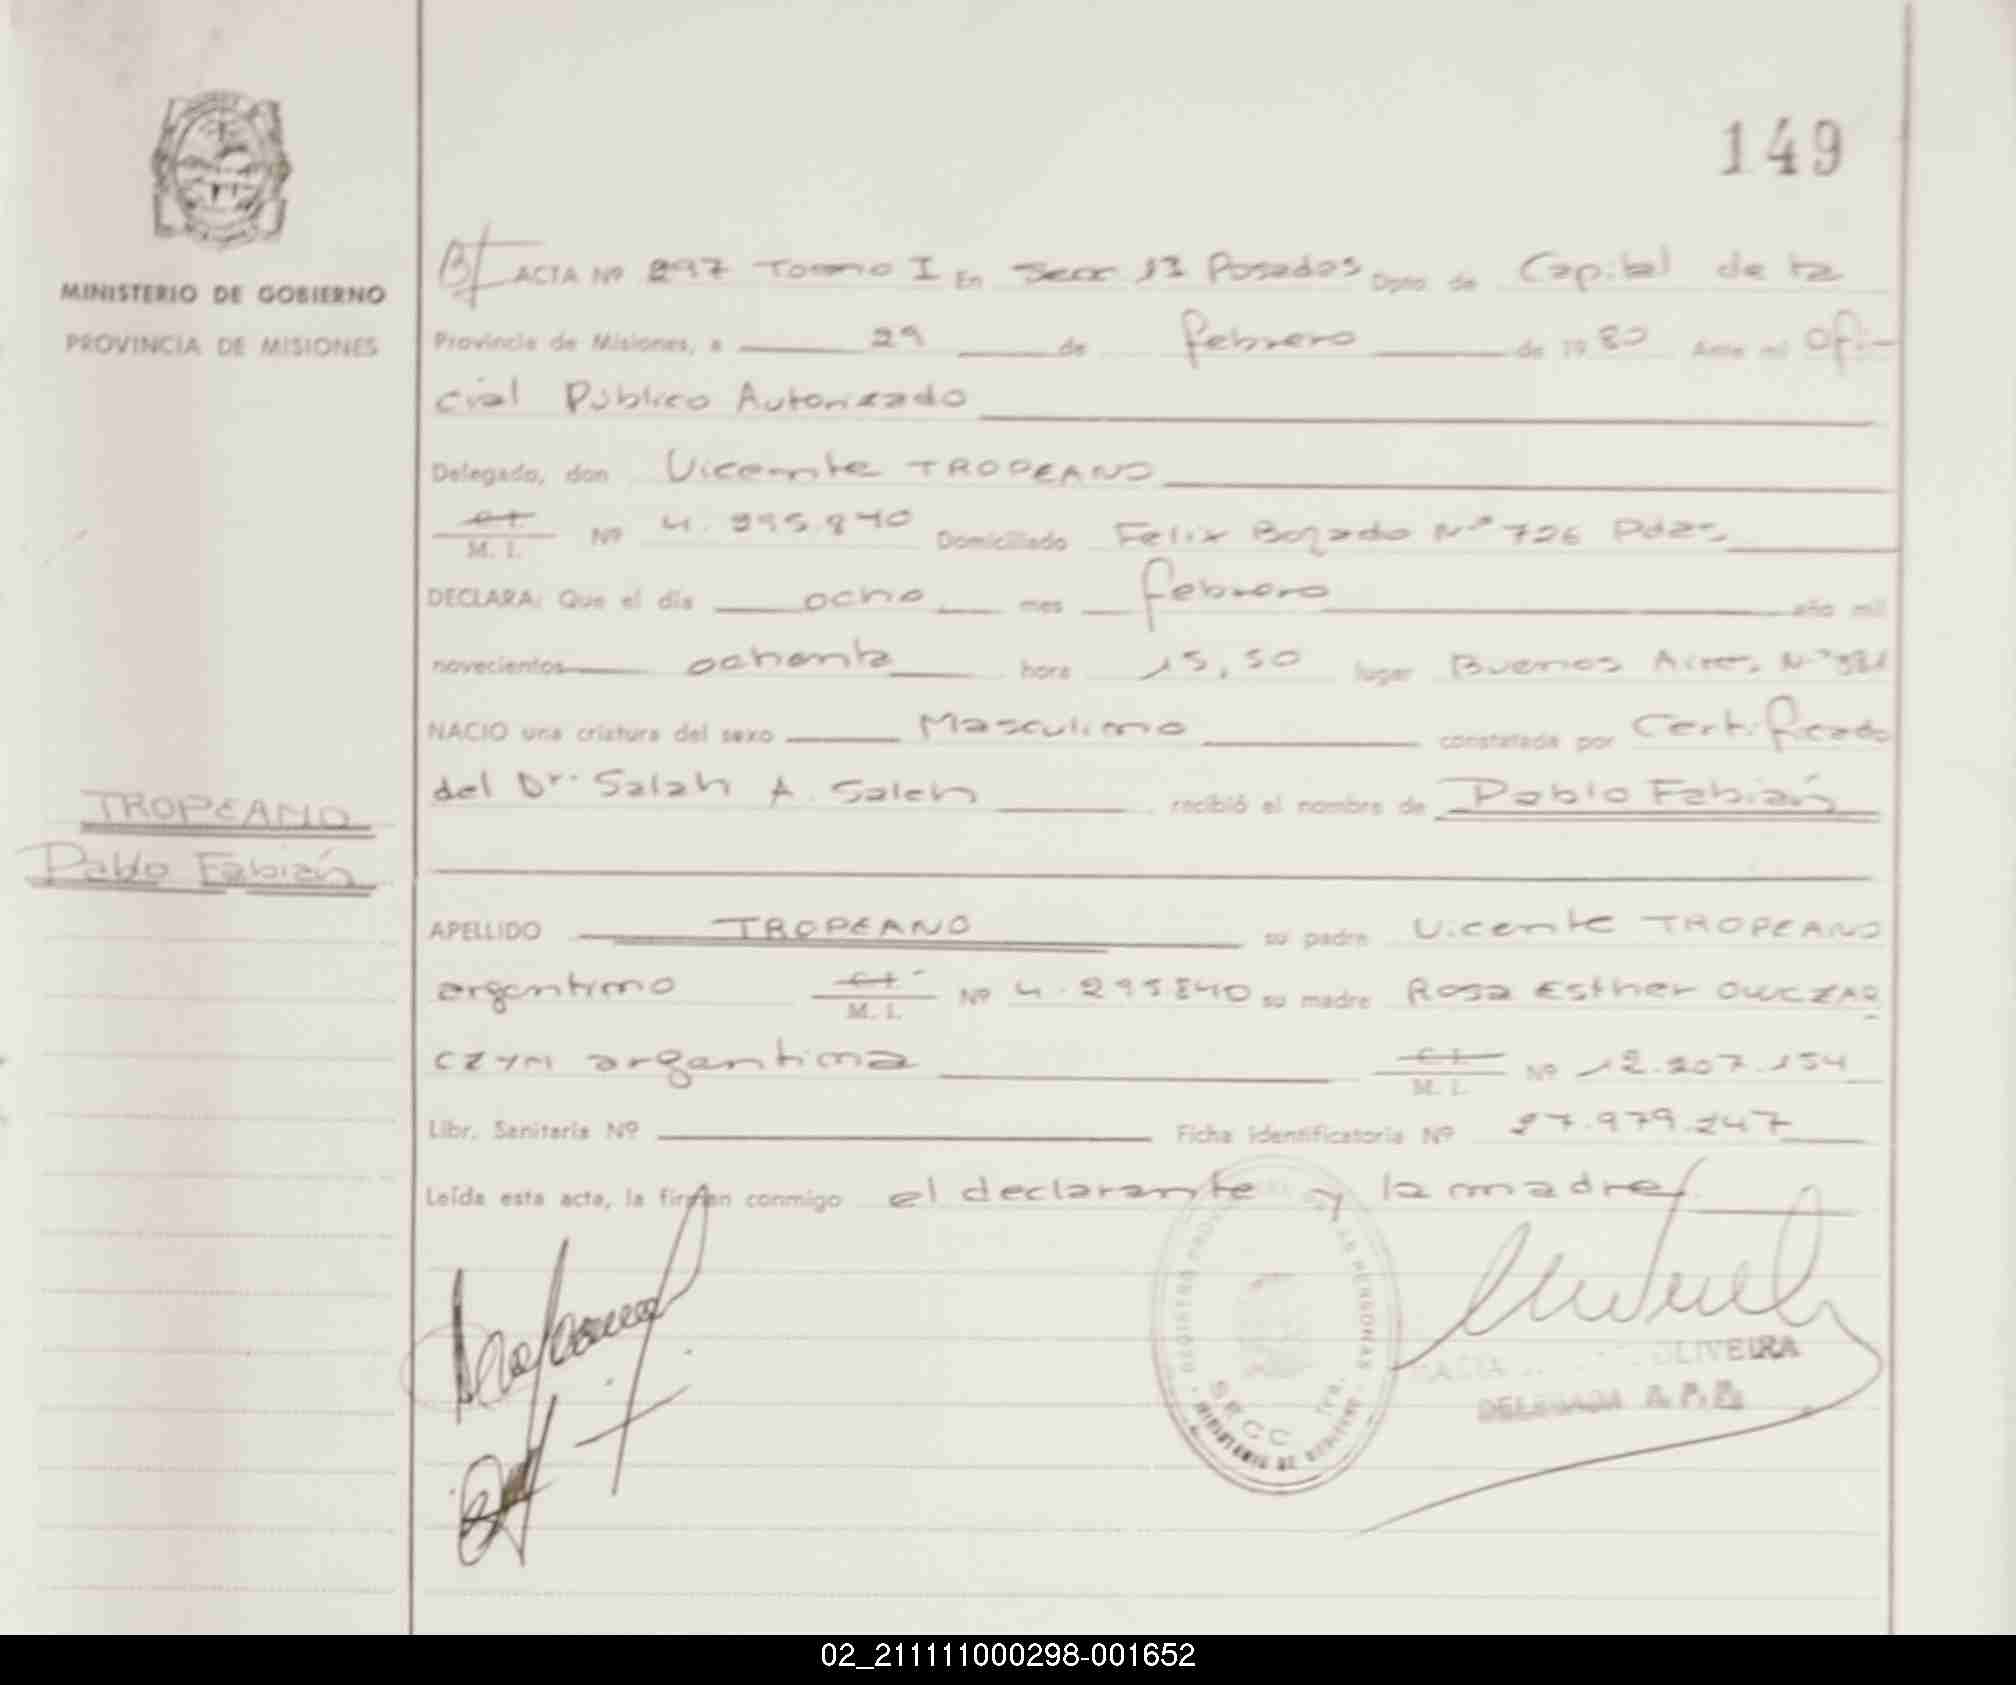 149
MINISTERIO DE GOBIERNO
PROVINCIA DE MISIONES
TROPEANO
Pablo Fabián
ACTA Nº 297 Tomo I En Secc 13 Posadas Dpto. de Capital de la
Provincia de Misiones, a 29 de febrero de 1980 Ante mí Ofi-
cial Público Autorizado
Delegado, don Vicente TROPEANO
C.I.
M. I. Nº 4.295.840 Domiciliado Felix Bogado Nº 726 Pdas.
DECLARA: Que el día ocho mes febrero año mil
novecientos ochenta hora 15,50 lugar Buenos Aires Nº
NACIO una criatura del sexo Masculino constatada por Certificado
del Dr. Salah A. Saleh recibió el nombre de Pablo Fabián
APELLIDO TROPEANO su padre Vicente TROPEANO
argentino C.I.
M. I. Nº 4.295840 su madre Rosa Esther OWCZAR
CZYN argentina C.I.
M. I. Nº 12.207.154
Libr. Sanitaria Nº Ficha identificatoria Nº 27.979.247
Leída esta acta, la firman conmigo el declarante y la madre
REGISTRO PROV DE LAS PERSONAS
SRCC
MINISTERIO DE GOBIERNO
OLIVEIRA
DELEGADA
02_211111000298-001652